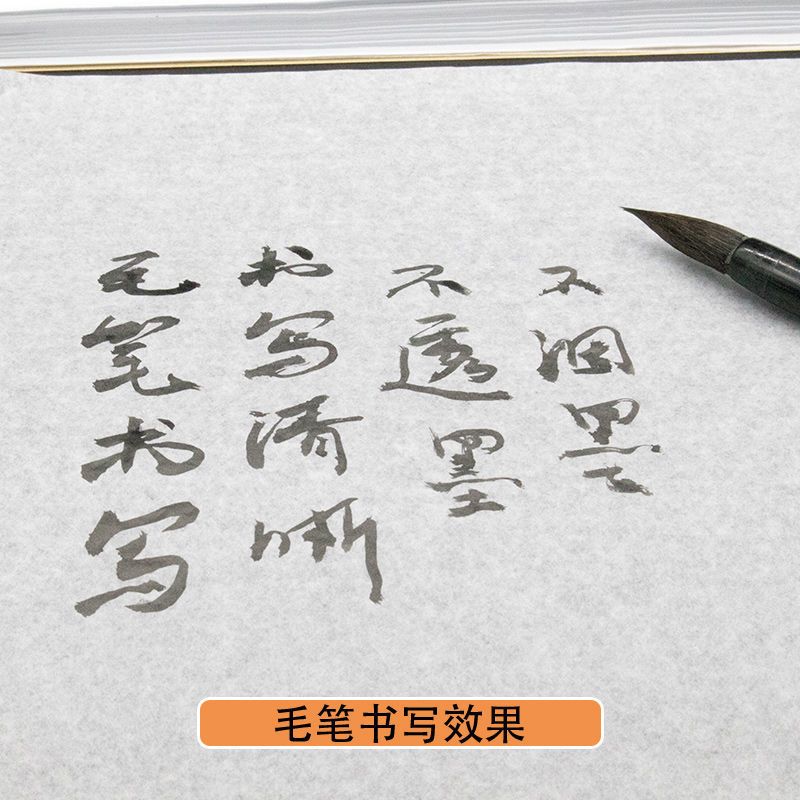 毛笔书写
书写清晰
不透墨
不洇墨
毛笔书写效果